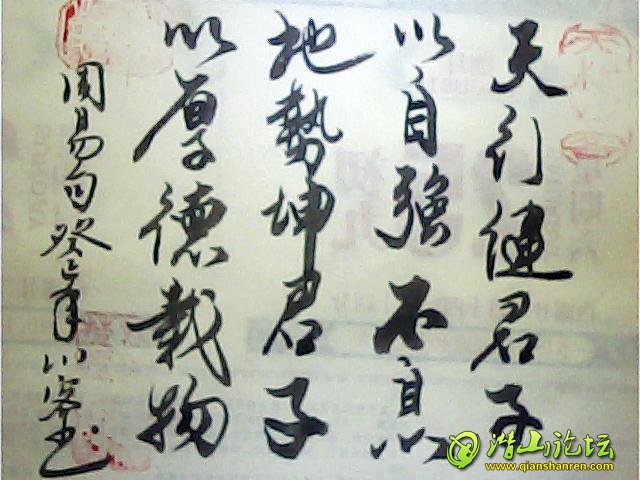 天行健君子
以自强不息
地势坤君子
以厚德载物
周易句癸巳年山客书
潜山论坛
www.qianshanren.com